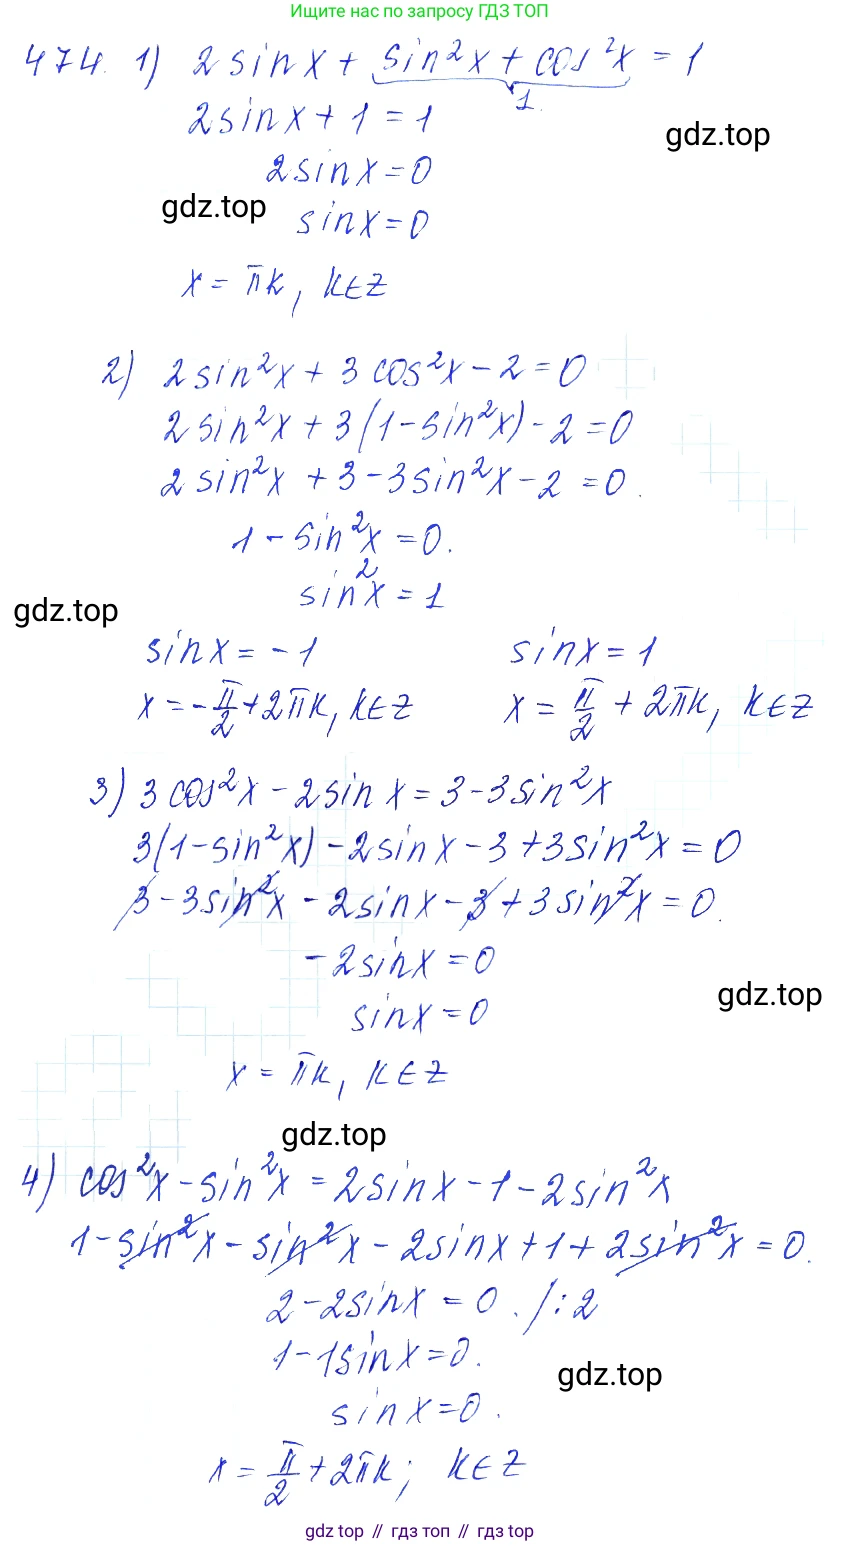 Ищите нас по запросу ГДЗ ТОП
474. 1) 2sinx + sin²x + cos²x = 1
1.
2sinx + 1 = 1
gdz.top
2sinx = 0
gdz.top
sinx = 0
x = πk, k∈Z
2) 2sin²x + 3cos²x - 2 = 0
2sin²x + 3(1-sin²x) - 2 = 0
2sin²x + 3 - 3sin²x - 2 = 0.
1 - sin²x = 0.
sin²x = 1
gdz.top
sinx = -1 sinx = 1
x = -π/2 + 2πk, k∈Z x = π/2 + 2πk, k∈Z
3) 3cos²x - 2sinx = 3 - 3sin²x
3(1-sin²x) - 2sinx - 3 + 3sin²x = 0
3 - 3sin²x - 2sinx - 3 + 3sin²x = 0.
-2sinx = 0
gdz.top
sinx = 0
x = πk, k∈Z
gdz.top
4) cos²x - sin²x = 2sinx - 1 - 2sin²x
1 - sin²x - sin²x - 2sinx + 1 + 2sin²x = 0.
2 - 2sinx = 0. /:2
1 - 1sinx = 0.
gdz.top
sinx = 0.
x = π/2 + 2πk; k∈Z
gdz top // гдз топ // gdz top